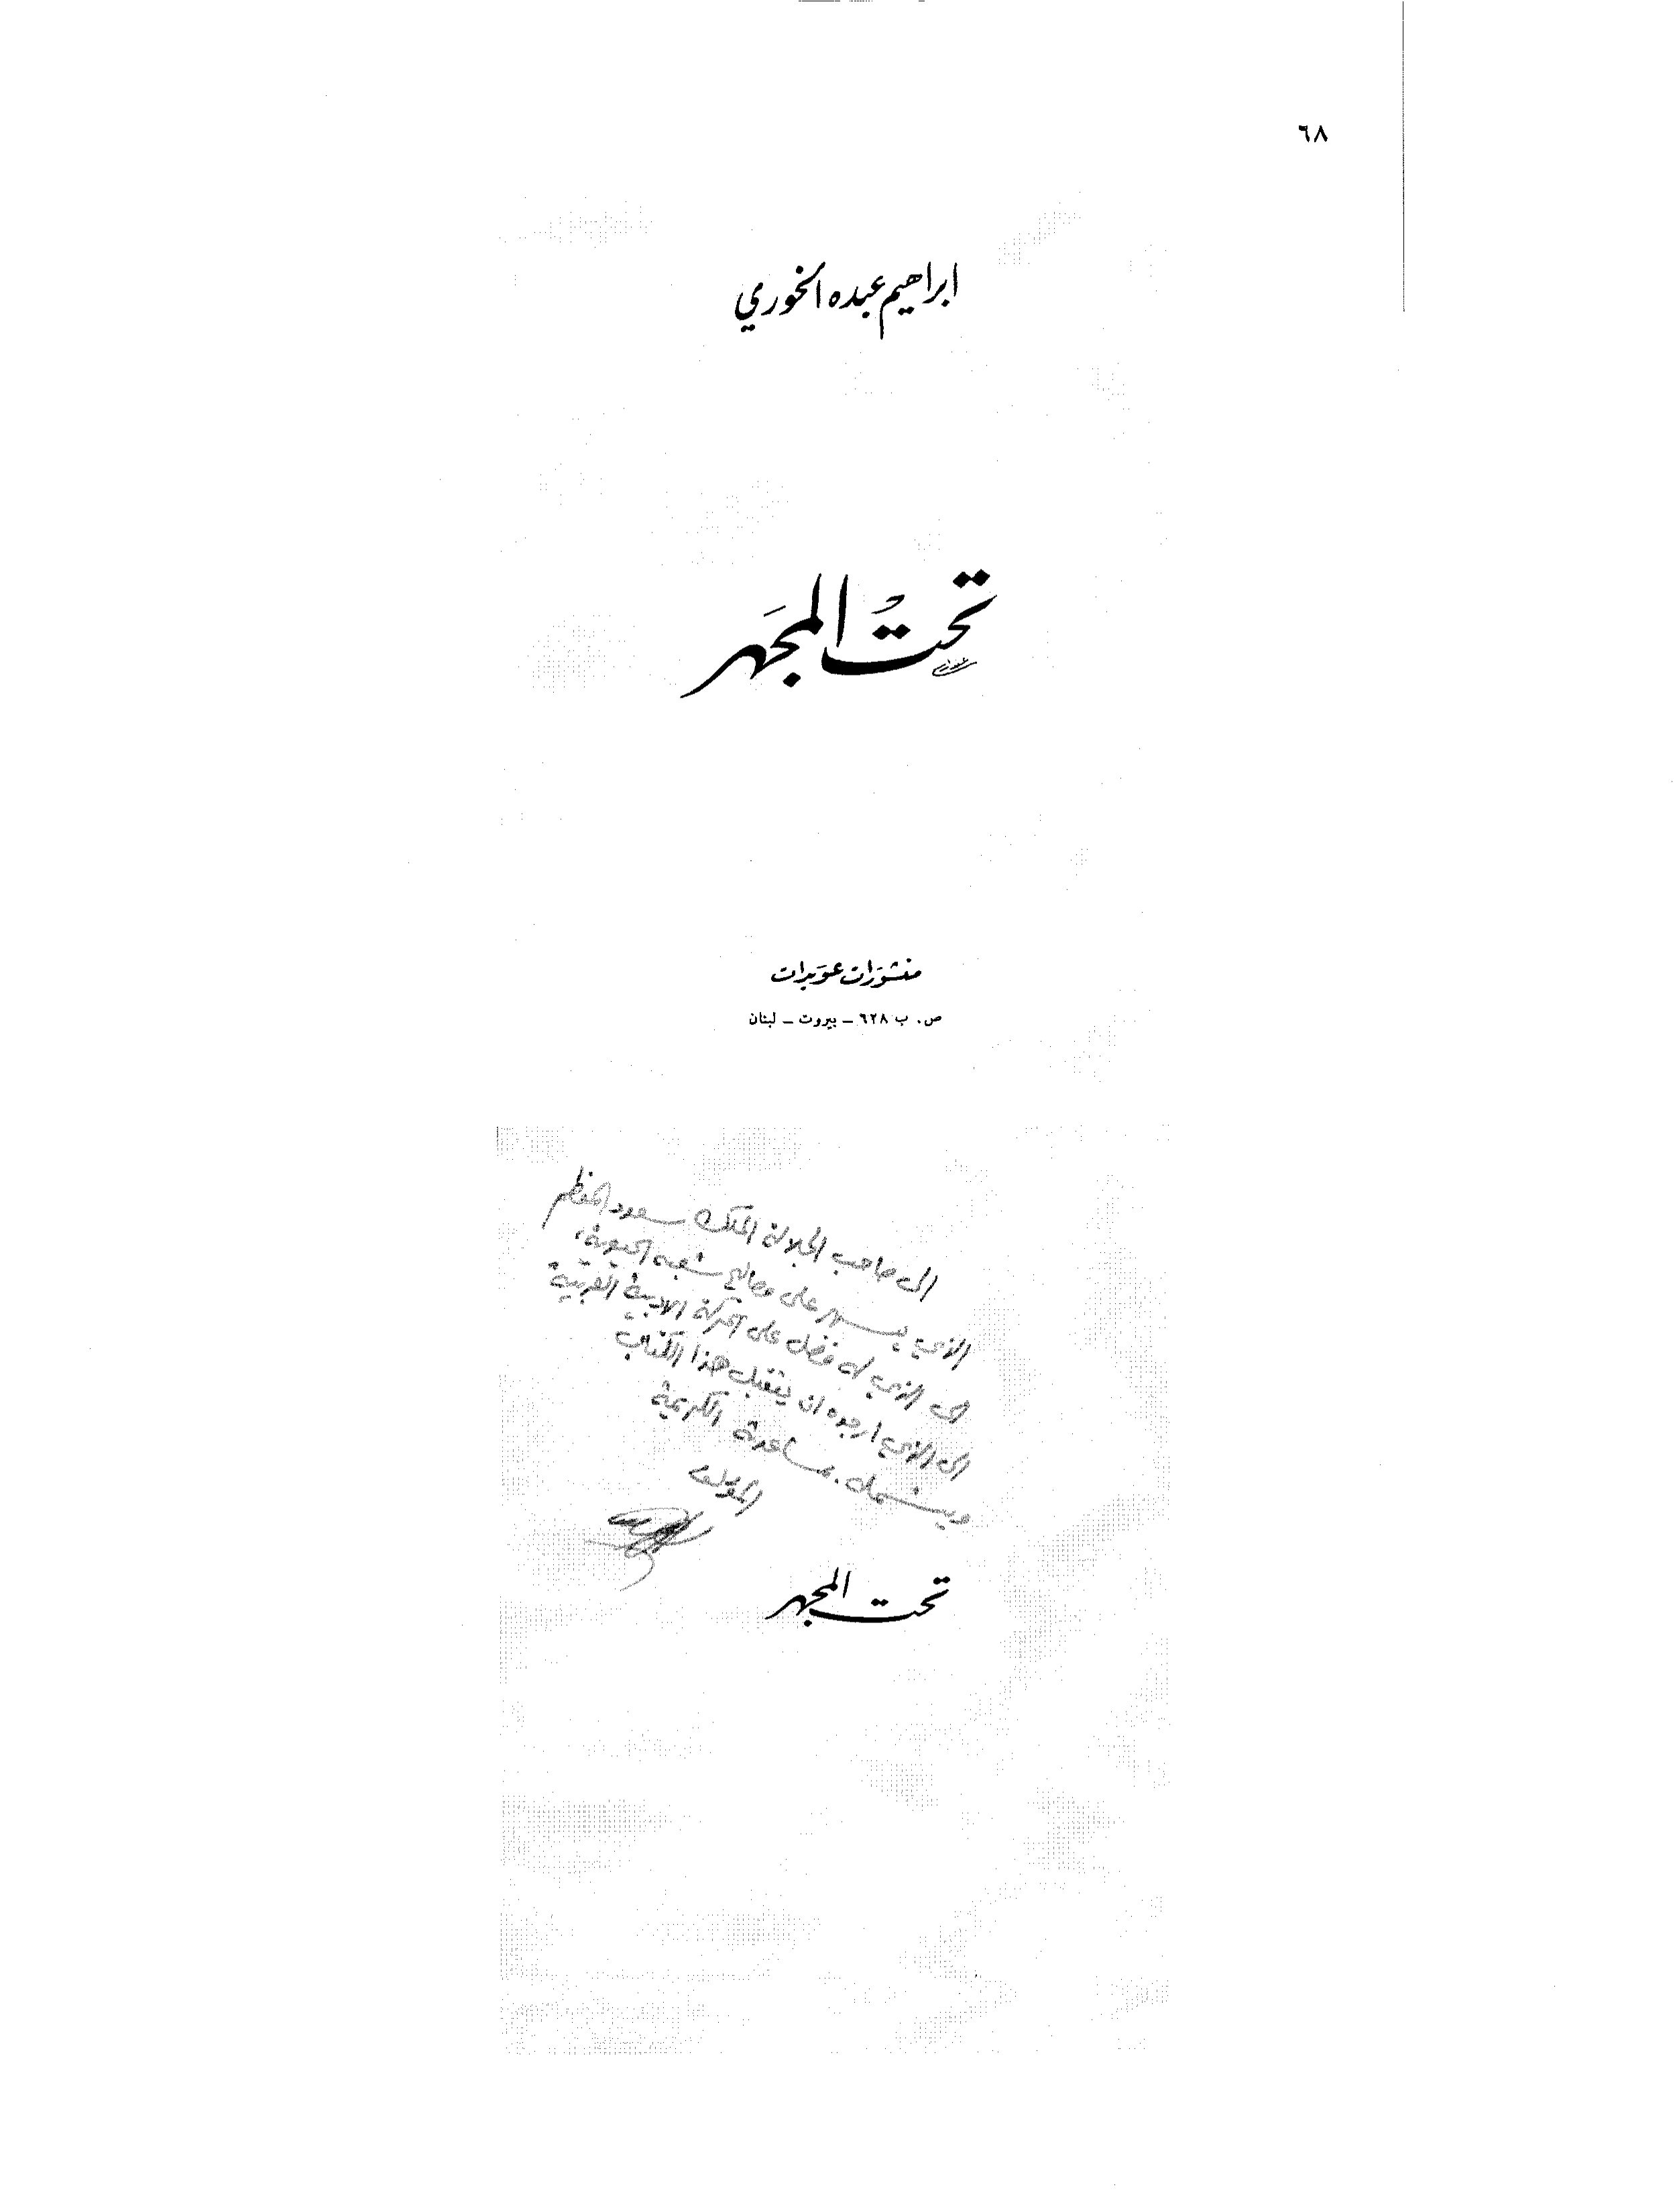 ٦٨
ابراهيم عبده الخوري
تحت المجهر
منشورات عويدات
ص . ب ٦٢٨ – بيروت – لبنان
الى صاحب الجلالة الملك سعود المعظم
الذي يسهر على مصالح شعبه الحيوية،
الى الذي له فضل على الحركة الادبية العربية
الى الذي ارجوه ان يتقبل هذا الكتاب
ويشمله بمساعدته الكريمة
المؤلف
تحت المجهر